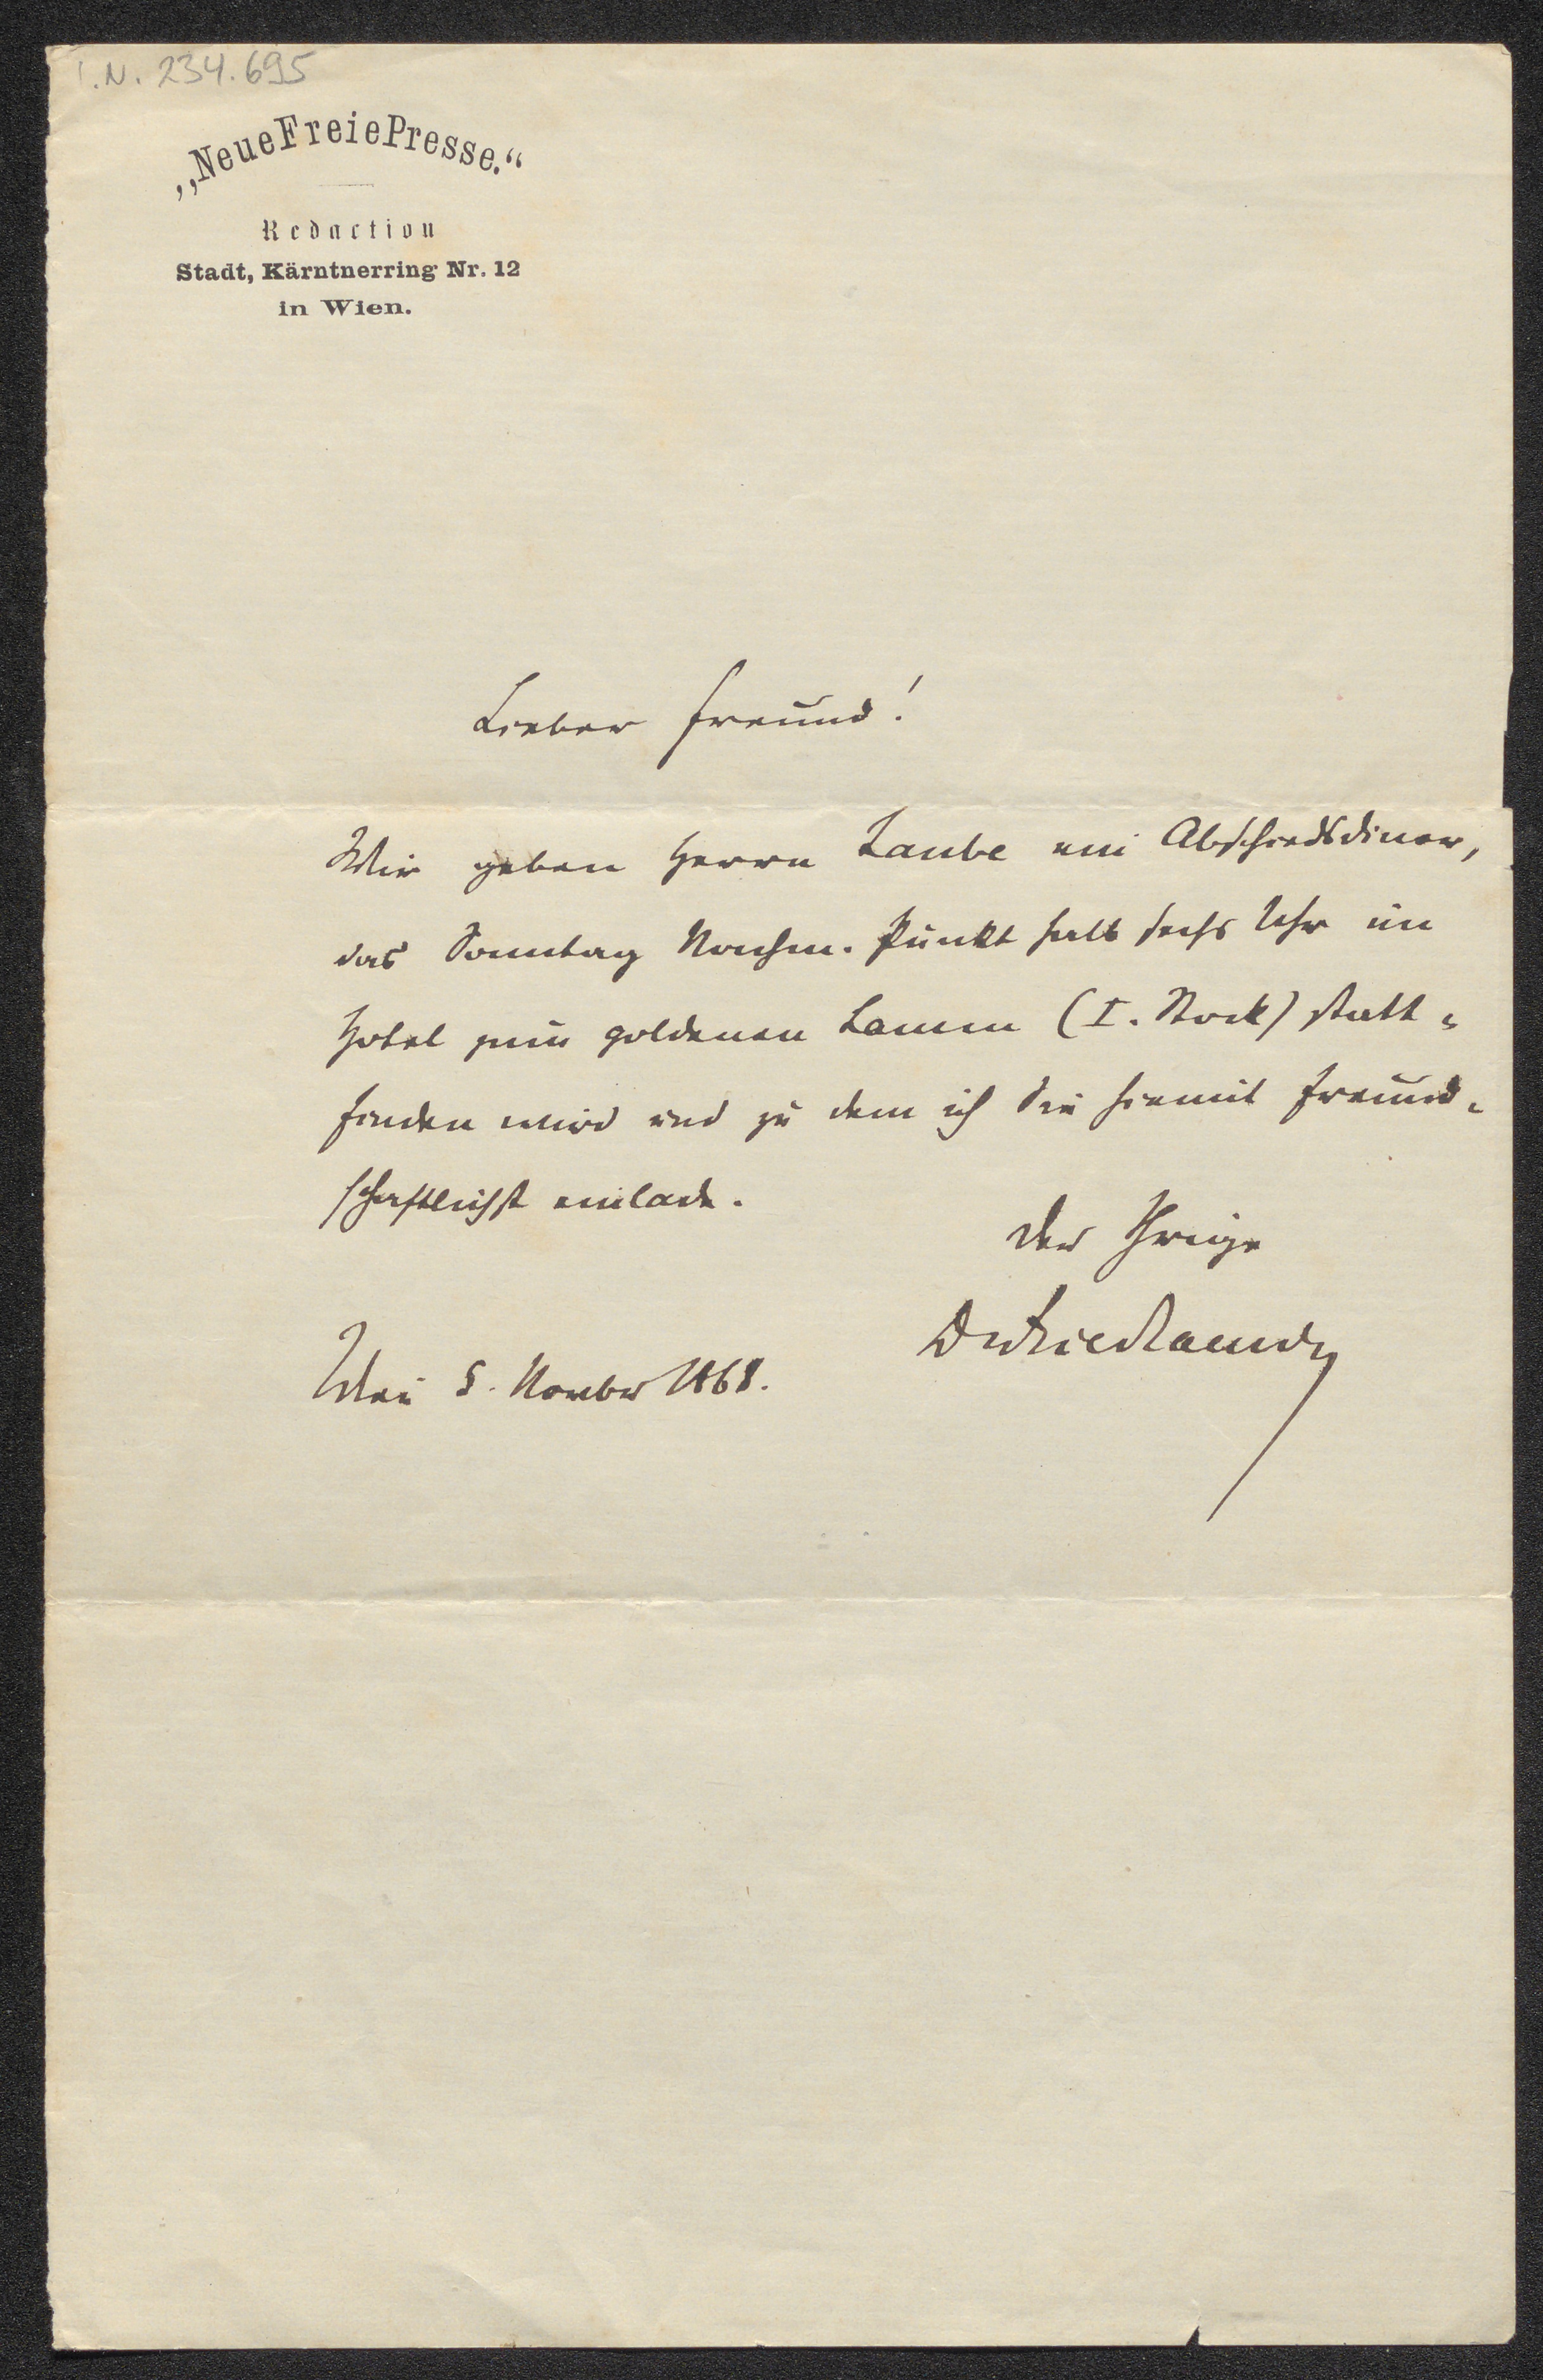 I.N. 234.695
„Neue Freie Presse.“
Redaction
Stadt, Kärntnerring Nr. 12
in Wien.
Lieber Freund!
Wir geben Herrn Laube ein Abschiedsdiner,
das Sonntag Nachm. Punkt halb sechs Uhr im
Hotel zum goldenen Lamm (I. Stock) statt=
finden wird und zu dem ich Sie hiemit freund=
schaftlichst einlade.
Der Ihrige
Wien 5. November 1868.